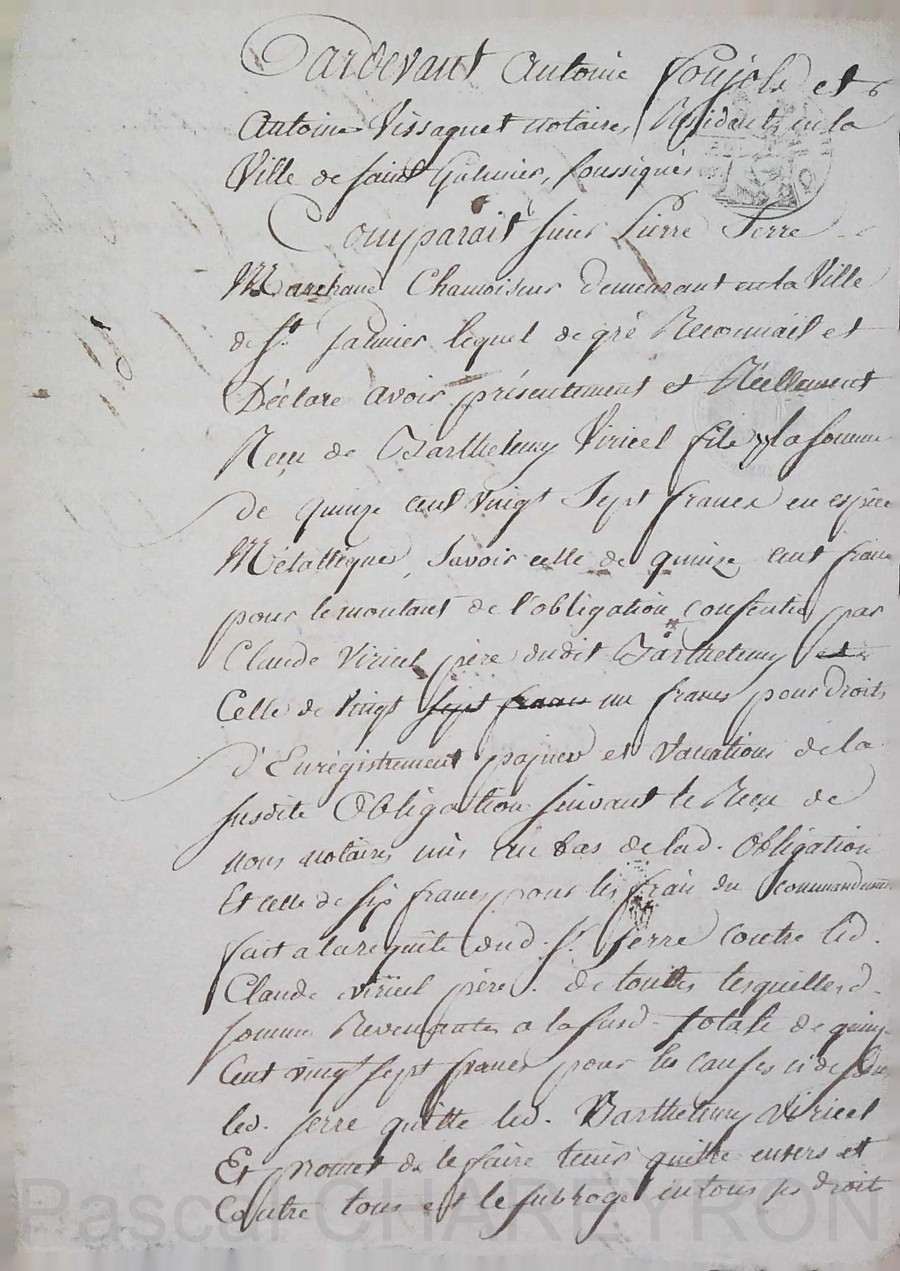 Pardevant Antoine Poujols et
Antoine Vissaguet notaires Résidents en la
Ville de Saint Galmier, Soussignés
Comparait Sieur Pierre Serre
Marchand Chamoiseur demeurant en la Ville
de St. Galmier lequel de gré Reconnait et
Déclare avoir présentement et Réellement
Reçu de Barthelemy Viricel fils, la somme
de quinze cent vingt Sept francs en espèce
Métallique, Savoir celle de quinze cent francs
pour le montant de l'obligation consentie par
Claude Viricel père dudit Barthelemy et
Celle de Vingt sept francs un francs pour Droits
d'Enrégistrement papier et Vacations de la
susdite Obligation suivant le Reçu de
nous notaires mis au bas de lad. Obligation
Et celle de six francs pour les frais du commandement
fait a la requête dud. Sr. Serre contre led.
Claude Viricel père. de toutes lesquelles d.
sommes Revenantes a la susd. totale de quinze
Cent vingt sept francs pour les causes ci dessus
led. Serre quitte led. Barthelemy Viricel
Et promet de le faire tenir quitte envers et
Contre tous et le subroge en tous ses droits
Pascal CHAREYRON